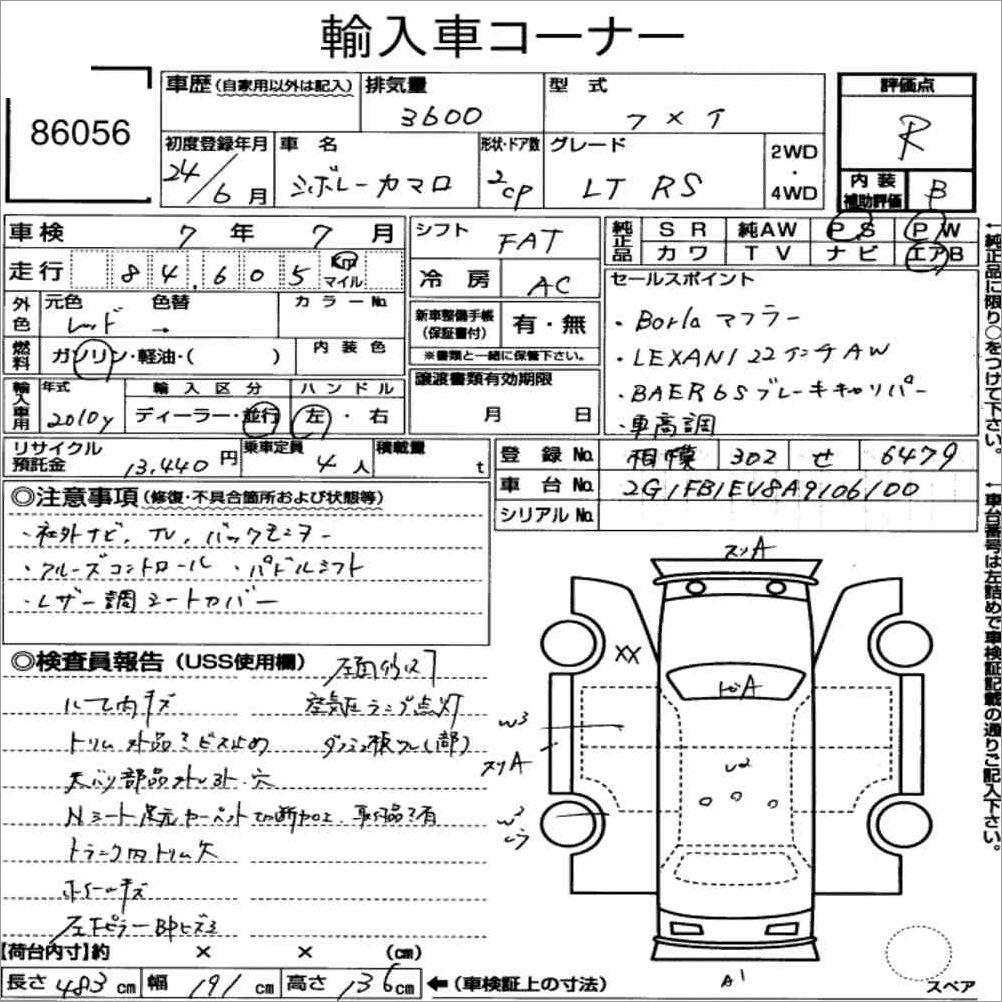 輸入車コーナー
86056
車歴（自家用以外は記入） 排気量 3600 型式 フメイ
評価点 R
初度登録年月 24/6月 車名 シボレーカマロ 形状・ドア数 2cp グレード LT RS 2WD・4WD
内装補助評価 B
車検 7年 7月 シフト FAT
走行 84,605 Km マイル 冷房 AC
純正品 SR 純AW PS PW
カワ TV ナビ エアB
外色 元色 レッド 色替 → カラーNo.
新車整備手帳（保証書付） 有・無
※書類と一緒に保管下さい。
燃料 ガソリン・軽油・（ ） 内装色
譲渡書類有効期限 月 日
輸入車用 年式 2010y 輸入区分 ディーラー・並行 ハンドル 左・右
セールスポイント
・Borla マフラー
・LEXANI 22インチAW
・BAER 6S ブレーキキャリパー
・車高調
リサイクル預託金 13,440円 乗車定員 4人 積載量 t
登録No. 相模 302 せ 6479
車台No. 2G1FB1EV8A9106100
シリアルNo.
◎注意事項（修復・不具合箇所および状態等）
・社外ナビ、TV、バックモニター
・クルーズコントロール ・パドルシフト
・レザー調シートカバー
◎検査員報告（USS使用欄）
空気圧ランプ点灯
トリム外品ミビス止め
天バリ部品
Nシート足元カーペット切断加工
トランク内トリム欠
ホイールキズ
左下ピラー
【荷台内寸】約 × × （cm）
長さ 483 cm 幅 191 cm 高さ 136 cm ←（車検証上の寸法）
スリA
XX
トビA
W3
スリA
U2
W2
A1
スペア
←純正品に限り○をつけて下さい。
←車台番号は左詰めで車検証記載の通りご記入下さい。